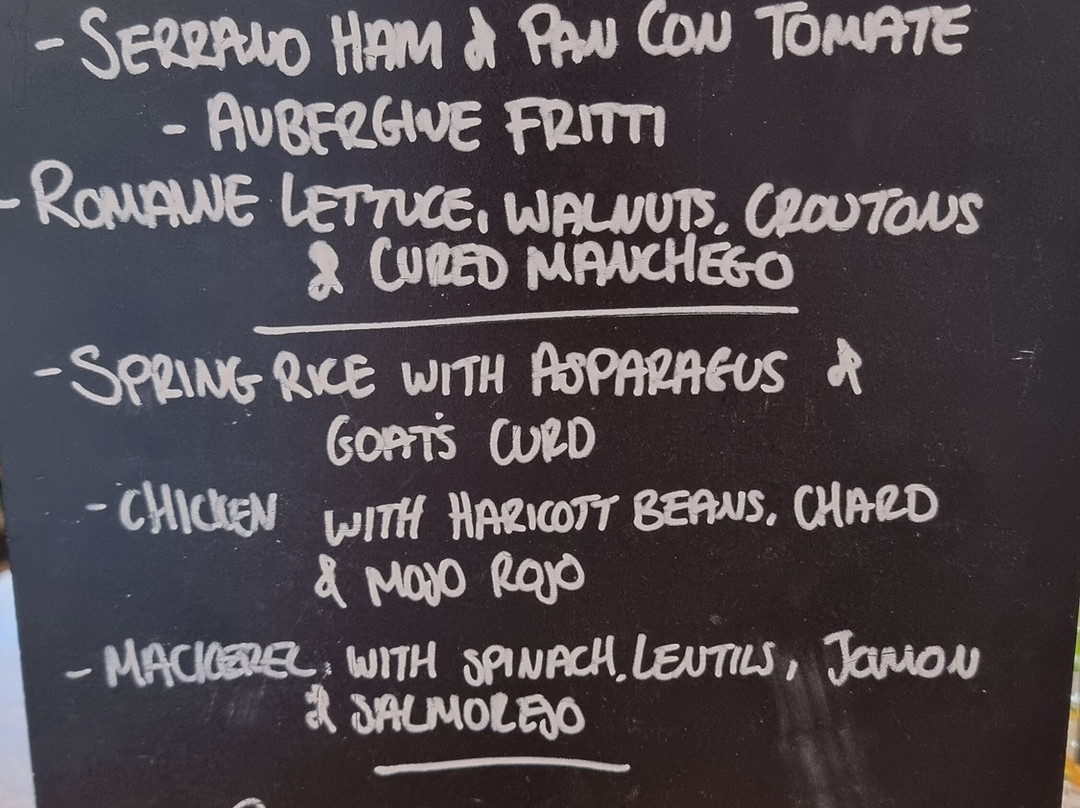 - SERRANO HAM & PAN CON TOMATE
- AUBERGINE FRITTI
- ROMAINE LETTUCE, WALNUTS, CROUTONS
& CURED MANCHEGO
- SPRING RICE WITH ASPARAGUS &
GOAT'S CURD
- CHICKEN WITH HARICOTT BEANS, CHARD
& MOJO ROJO
- MACKEREL, WITH SPINACH, LENTILS, JAMON
& SALMOREJO